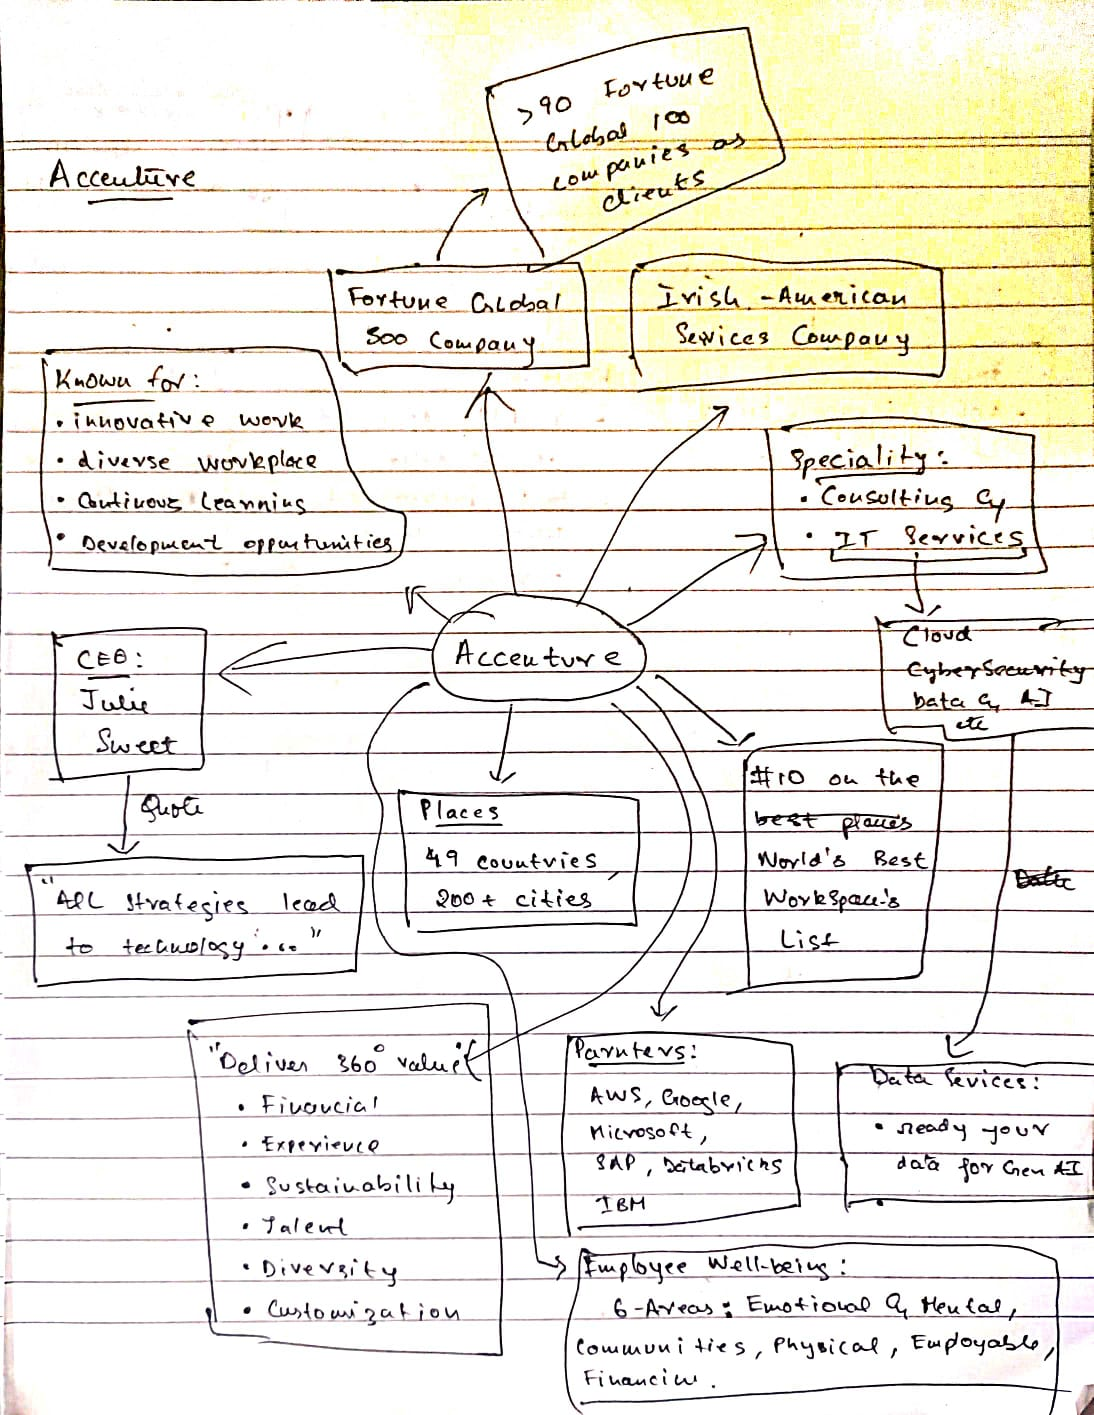 Accenture
>90 Fortune
Global 100
companies as
clients
Fortune Global
500 Company
Irish-American
Services Company
Known for:
• innovative work
• diverse workplace
• Continous learning
• Development oppurtunities
Speciality:
• Consulting &
• IT Services
Cloud
CyberSecurity
Data & AI
etc
Accenture
CEO:
Julie
Sweet
Quote
"All strategies lead
to technology...."
Places
49 countries,
200+ cities
#10 on the
best places
World's Best
Workspace's
List
Data
"Deliver 360° value"
• Financial
• Experience
• Sustainability
• Talent
• Diversity
• Customization
Parnters:
AWS, Google,
Microsoft,
SAP, Databricks
IBM
Data Sevices:
• Ready your
data for Gen AI
Employee Well-being:
6-Areas: Emotional & Mental,
Communities, Physical, Employable,